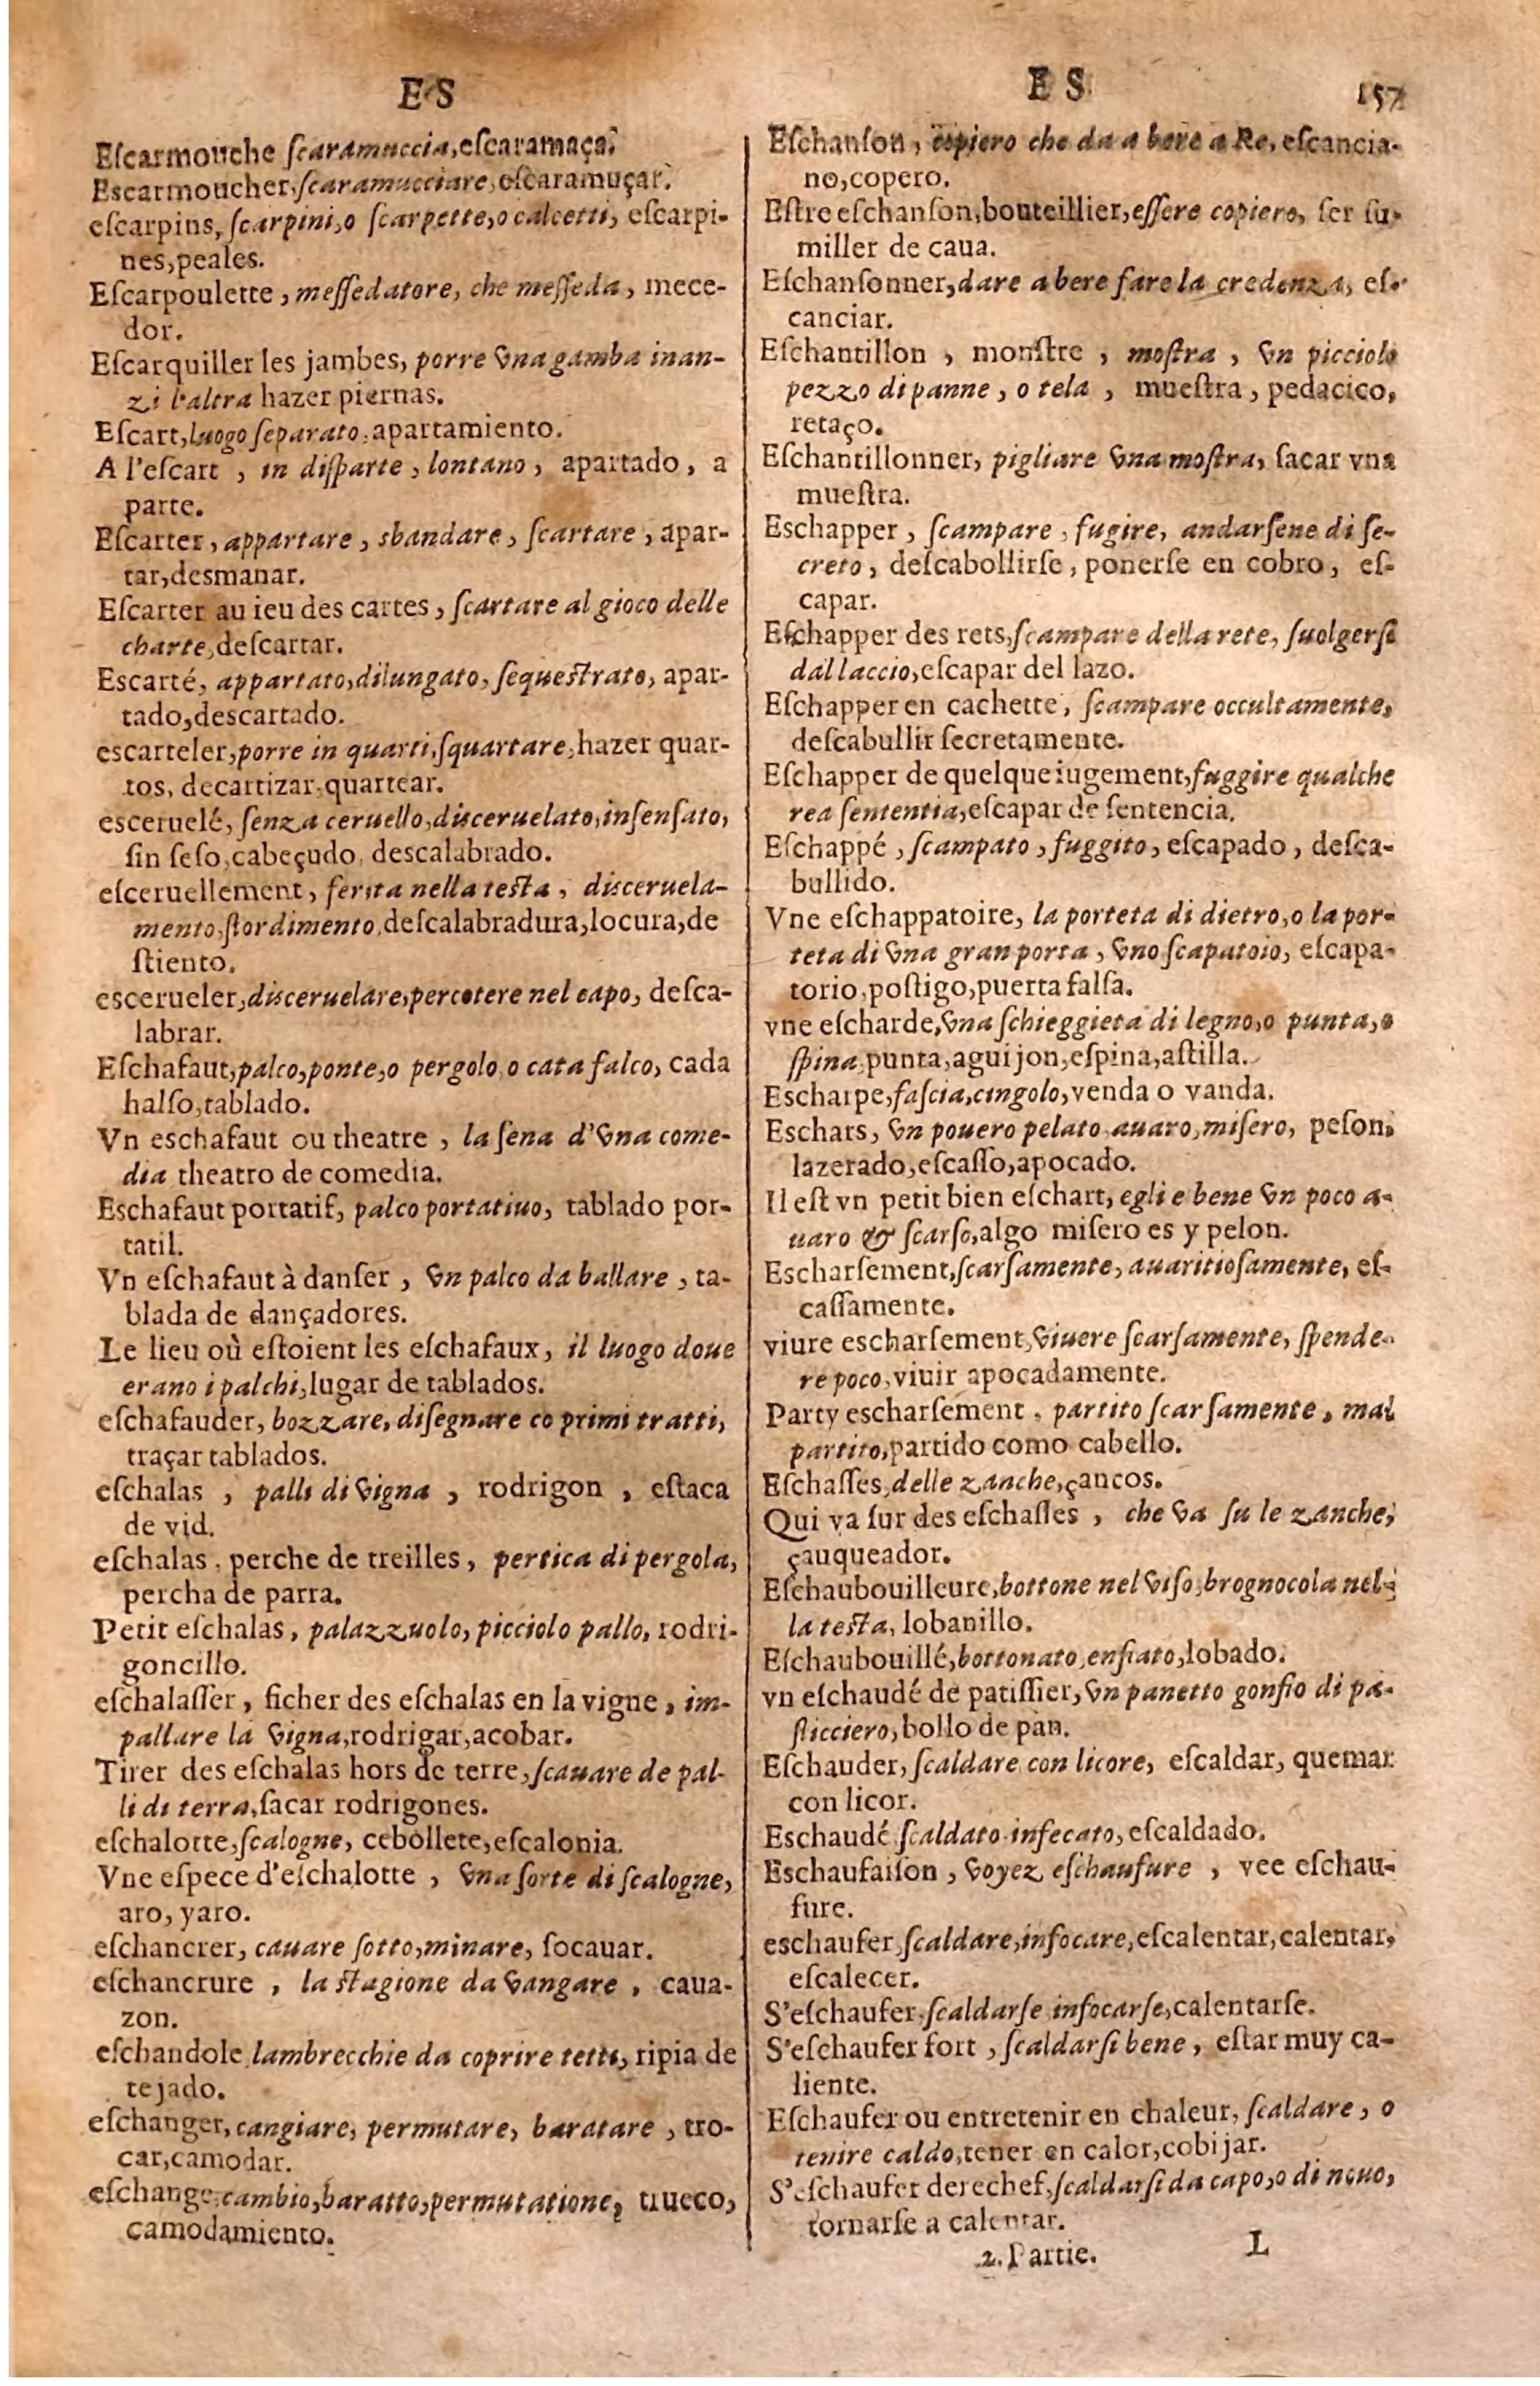 E S
Eſcarmouche ſcaramuccia,eſcaramaça.
Escarmoucher,ſcaramucciare,eſcaramuçar.
eſcarpins, ſcarpini,o ſcarpette,o calcetti, eſcarpi-
nes,peales.
Eſcarpoulette , meſſedatore, che meſſeda , mece-
dor.
Eſcarquiller les jambes, porre vna gamba inan-
zi l'altra hazer piernas.
Eſcart,luogo ſeparato,apartamiento.
A l'eſcart , in diſparte , lontano , apartado , a
parte.
Eſcarter , appartare , sbandare , ſcartare , apar-
tar,desmanar.
Eſcarter au ieu des cartes , ſcartare al gioco delle
charte,deſcartar.
Escarté, appartato,dilungato, ſequeſtrato, apar-
tado,deſcartado.
escarteler,porre in quarti,ſquartare,hazer quar-
tos, decartizar,quartear.
esceruelé, ſenza ceruello,disceruelato,inſenſato,
ſin ſeſo,cabeçudo, descalabrado.
eſceruellement, ferita nella teſta , disceruela-
mento,ſtordimento,deſcalabradura,locura,de
ſtiento.
escerueler,disceruelare,percotere nel capo, deſca-
labrar.
Eſchafaut,palco,ponte,o pergolo,o cata falco, cada
halſo,tablado.
Vn eschafaut ou theatre , la ſena d'vna come-
dia theatro de comedia.
Eschafaut portatif, palco portatiuo, tablado por-
tatil.
Vn eſchafaut à danſer , vn palco da ballare , ta-
blada de dançadores.
Le lieu où eſtoient les eſchafaux, il luogo doue
erano i palchi,lugar de tablados.
eſchafauder, bozzare, diſegnare co primi tratti,
traçar tablados.
eſchalas , palli di vigna , rodrigon , eſtaca
de vid.
eſchalas , perche de treilles , pertica di pergola,
percha de parra.
Petit eſchalas, palazzuolo, picciolo pallo, rodri-
goncillo.
eſchalaſſer , ficher des eſchalas en la vigne , im-
pallare la vigna,rodrigar,acobar.
Tirer des eſchalas hors de terre,ſcauare de pal-
li di terra,ſacar rodrigones.
eſchalotte,ſcalogne, cebollete,eſcalonia.
Vne eſpece d'eſchalotte , vna ſorte di ſcalogne,
aro, yaro.
eſchancrer, cauare ſotto,minare, ſocauar.
eſchancrure , la ſtagione da vangare , caua-
zon.
eſchandole lambrecchie da coprire tetti, ripia de
tejado.
eſchanger, cangiare, permutare, baratare , tro-
car,camodar.
eſchange,cambio,baratto,permutatione, trueco,
camodamiento.
E S 157
Eſchanſon , copiero che da a bere a Re, eſcancia-
no,copero.
Eſtre eſchanſon,bouteillier,eſſere copiero, ſer ſu-
miller de caua.
Eſchanſonner,dare a bere fare la credenza, eſ-
canciar.
Eſchantillon , monſtre , moſtra , vn picciolo
pezzo di panne , o tela , mueſtra , pedacico,
retaço.
Eſchantillonner, pigliare vna moſtra, ſacar vna
mueſtra.
Eschapper , ſcampare , fugire, andarſene di ſe-
creto , deſcabollirſe , ponerſe en cobro , eſ-
capar.
Eſchapper des rets,ſcampare della rete, ſuolgerſi
dal laccio,eſcapar del lazo.
Eſchapper en cachette , ſcampare occultamente,
deſcabullir ſecretamente.
Eſchapper de quelque iugement,fuggire qualche
rea ſententia,eſcapar de ſentencia.
Eſchappé , ſcampato , fuggito , eſcapado , deſca-
bullido.
Vne eſchappatoire, la porteta di dietro,o la por-
teta di vna gran porta , vno ſcapatoio, eſcapa-
torio,poſtigo,puerta falſa.
vne eſcharde,vna ſchieggieta di legno,o punta,o
ſpina,punta,aguijon,eſpina,aſtilla.
Escharpe,faſcia,cingolo,venda o vanda.
Eschars, vn pouero pelato auaro,miſero, peſon,
lazerado,eſcaſſo,apocado.
Il eſt vn petit bien eſchart, egli e bene vn poco a-
uaro & ſcarſo,algo miſero es y pelon.
Escharſement,ſcarſamente, auaritioſamente, eſ-
caſſamente.
viure escharſement,viuere ſcarſamente, ſpende-
re poco,viuir apocadamente.
Party escharſement , partito ſcarſamente , mal
partito,partido como cabello.
Eſchaſſes,delle zanche,çancos.
Qui va ſur des eſchaſſes , che va ſu le zanche,
çauqueador.
Eſchaubouilleure,bottone nel viſo,brognocola nel-
la teſta, lobanillo.
Eſchaubouillé,bottonato,enfiato,lobado.
vn eſchaudé de patiſſier, vn panetto gonfio di pa-
ſticciero,bollo de pan.
Eſchauder, ſcaldare con licore, eſcaldar, quemar
con licor.
Eschaudé ſcaldato infecato, eſcaldado.
Eschaufaiſon , voyez eſchaufure , vee eſchau-
fure.
eschaufer,ſcaldare,infocare,eſcalentar,calentar,
eſcalecer.
S'eſchaufer,ſcaldarſe infocarſe,calentarſe.
S'eſchaufer fort , ſcaldarſi bene , eſtar muy ca-
liente.
Eſchaufer ou entretenir en chaleur, ſcaldare , o
tenire caldo,tener en calor,cobijar.
S'eſchaufer derechef,ſcaldarſi da capo,o di nouo,
tornarſe a calentar.
2. Partie. L